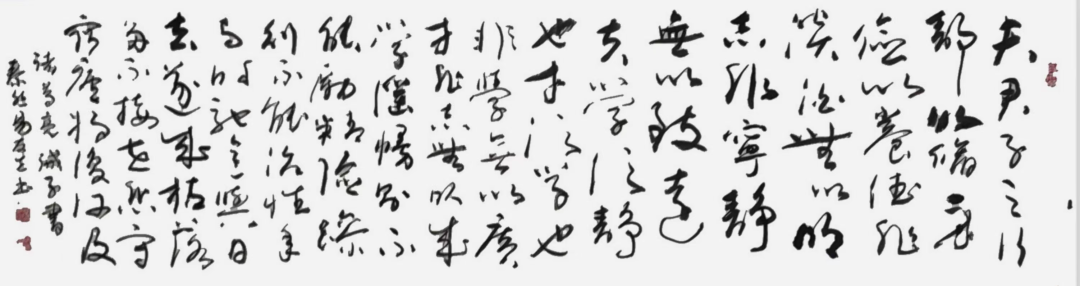 夫君子之行
静以脩身
儉以養德非
淡泊無以明
志非寧靜
無以致遠
夫學須靜
也才須学也
非學無以廣
才非志無以成
學淫慢則不
能勵精險躁
則不能治性年
与时馳意與日
去遂成枯落
多不接世悲守
窮廬将復何及
諸葛亮誡子書